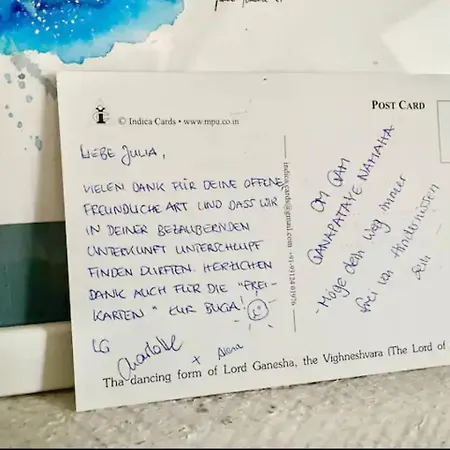 © Indica Cards • www.mpu.co.in
POST CARD
LIEBE JULIA,
VIELEN DANK FÜR DEINE OFFENE,
FREUNDLICHE ART UND DASS WIR
IN DEINER BEZAUBERNDEN
UNTERKUNFT UNTERSCHLUPF
FINDEN DURFTEN. HERZLICHEN
DANK AUCH FÜR DIE "FREI-
KARTEN" ZUR BUGA!
LG
Charlotte
+
indica.cards@gmail.com
OM GAM
GANAPATAYE NAMAHA
- Möge dein Weg immer
frei von Hindernissen
sein
Tha dancing form of Lord Ganesha, the Vighneshvara (The Lord of